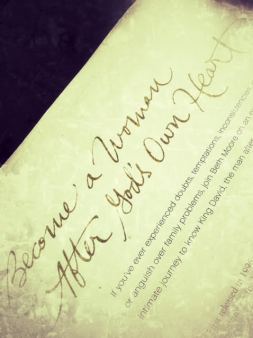 Become a Woman
After God's Own Heart
If you've ever experienced doubts, temptations, inconsistencies
or anguish over family problems, join Beth Moore on an
intimate journey to know King David, the man
released in